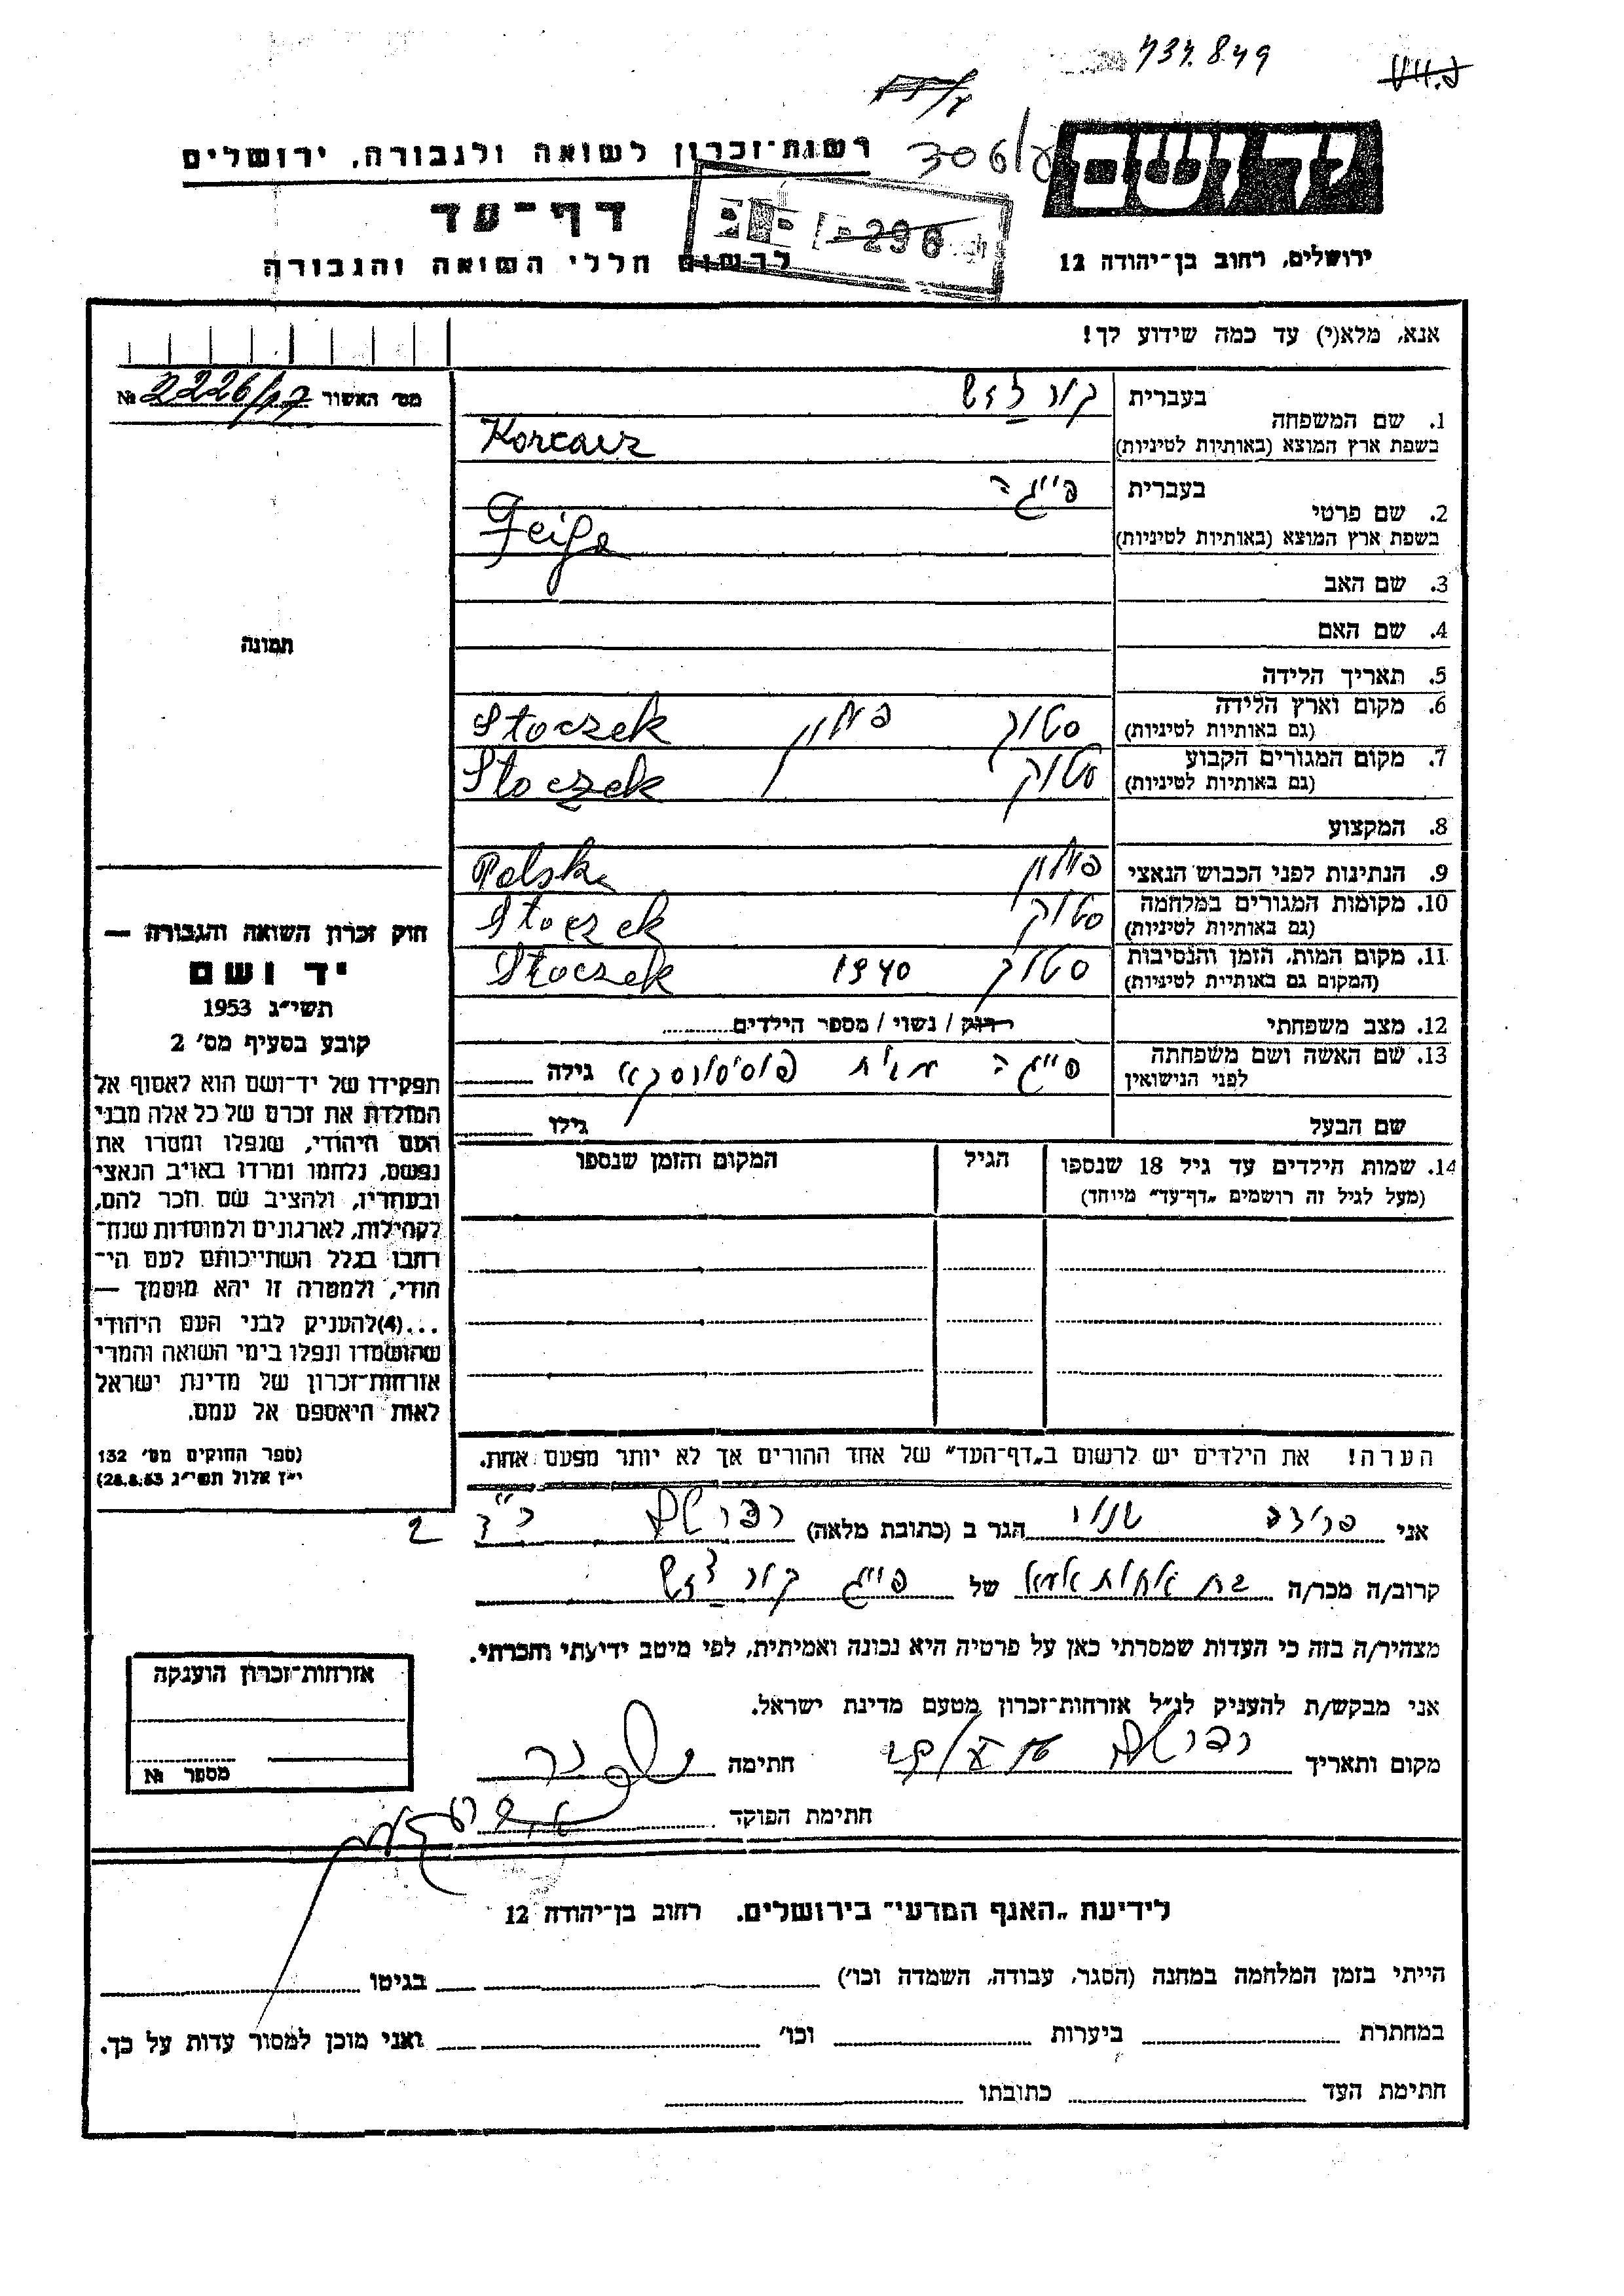 737.849
306/ע
יד ושם
רשות־זכרון לשואה ולגבורה, ירושלים
דף־עד
לרשום חללי השואה והגבורה
ירושלים, רחוב בן־יהודה 12
אנא, מלא(י) עד כמה שידוע לך!
מס׳ האשור № 2226/
1. שם המשפחה
בעברית
בשפת ארץ המוצא (באותיות לטיניות) Korcarz
2. שם פרטי
בעברית פייגה
בשפת ארץ המוצא (באותיות לטיניות) Feiga
3. שם האב
4. שם האם
5. תאריך הלידה
6. מקום וארץ הלידה סטוק פולין Stoczek
(גם באותיות לטיניות)
7. מקום המגורים הקבוע סטוק Stoczek
(גם באותיות לטיניות)
8. המקצוע
9. הנתינות לפני הכבוש הנאצי פולין Polska
10. מקומות המגורים במלחמה סטוק Stoczek
(גם באותיות לטיניות)
11. מקום המות, הזמן והנסיבות סטוק 1940 Stoczek
(המקום גם באותיות לטיניות)
12. מצב משפחתי רווק / נשוי / מספר הילדים
13. שם האשה ושם משפחתה פייגה גילה
לפני הנישואין
שם הבעל גילו
14. שמות הילדים עד גיל 18 שנספו הגיל המקום והזמן שנספו
(מעל לגיל זה רושמים „דף־עד״ מיוחד)
הערה! את הילדים יש לרשום ב„דף־העד״ של אחד ההורים אך לא יותר מפעם אחת.
תמונה
חוק זכרון השואה והגבורה —
יד ושם
תשי״ג 1953
קובע בסעיף מס׳ 2
תפקידו של יד־ושם הוא לאסוף אל
המולדת את זכרם של כל אלה מבני
העם היהודי, שנפלו ומסרו את
נפשם, נלחמו ומרדו באויב הנאצי
ובעוזריו, ולהציב שם וזכר להם,
לקהילות, לארגונים ולמוסדות שנח־
רבו בגלל השתייכותם לעם הי־
הודי, ולמטרה זו יהא מוסמך —
...(4)להעניק לבני העם היהודי
שהושמדו ונפלו בימי השואה והמרי
אזרחות־זכרון של מדינת ישראל
לאות היאספם אל עמם.
(ספר החוקים מס׳ 132
י״ז אלול תשי״ג 28.8.53)
אני הגר ב (כתובת מלאה)
קרוב/ה מכר/ה של
מצהיר/ה בזה כי העדות שמסרתי כאן על פרטיה היא נכונה ואמיתית, לפי מיטב ידיעתי והכרתי.
אני מבקש/ת להעניק לנ״ל אזרחות־זכרון מטעם מדינת ישראל.
מקום ותאריך חתימה
חתימת הפוקד
אזרחות־זכרון הוענקה
מספר №
לידיעת „האגף המדעי״ בירושלים. רחוב בן־יהודה 12
הייתי בזמן המלחמה במחנה (הסגר, עבודה, השמדה וכו׳) בגיטו
במחתרת ביערות וכו׳ ואני מוכן למסור עדות על כך.
חתימת העד כתובתו